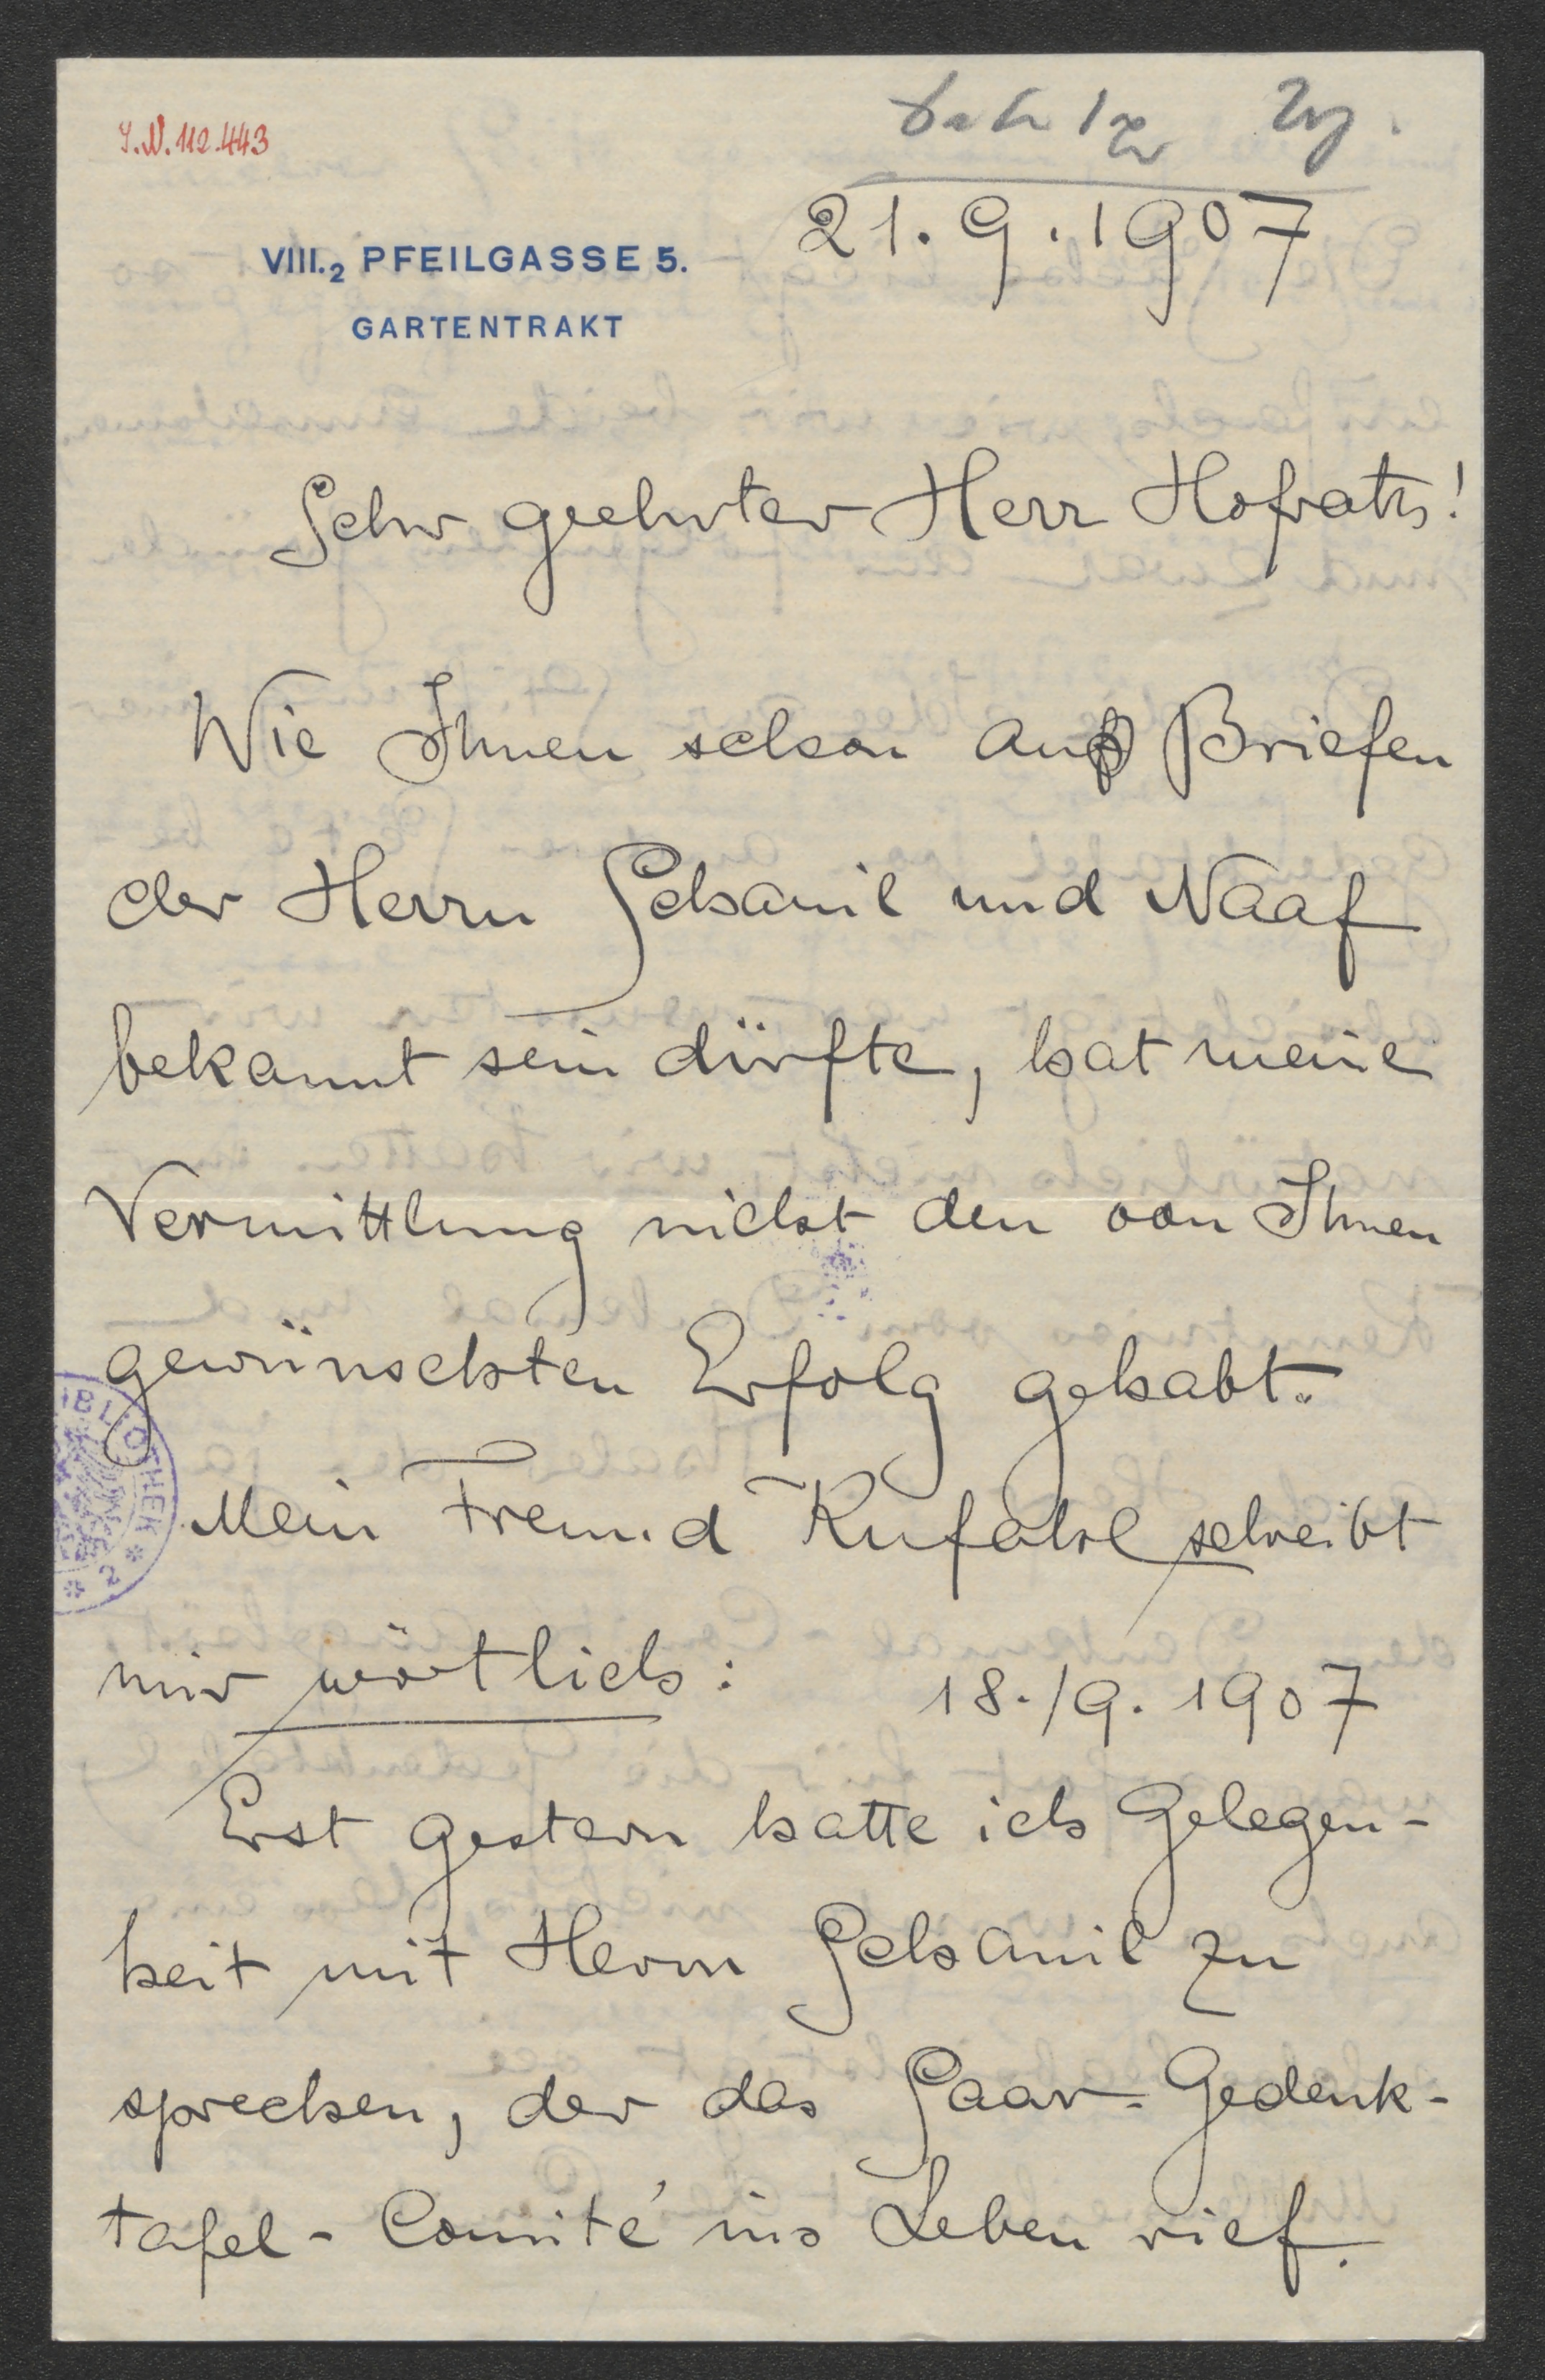 I.N. 112.443
21.9.1907
VIII.2 PFEILGASSE 5.
GARTENTRAKT
Sehr geehrter Herr Hofrath!
Wie Ihnen schon aus Briefen
der Herrn Schamil und Naaf
bekannt sein dürfte, hat meine
Vermittlung nicht den von Ihnen
gewünschten Erfolg gehabt.
Mein Freund Kufahl schreibt
mir wörtlich: 18./9. 1907
Erst gestern hatte ich Gelegen-
heit mit Herrn Schamil zu
sprechen, der das Saar-Gedenk-
tafel-Comité ins Leben rief.
IBLIOTHEK
* 2 *